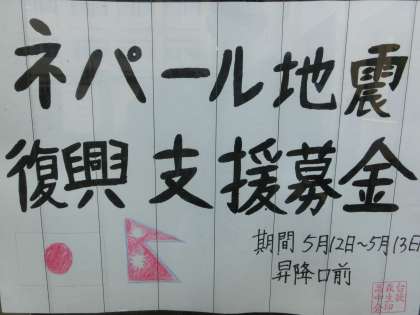 ネパール地震
復興支援募金
期間 5月12日~5月13日
昇降口前